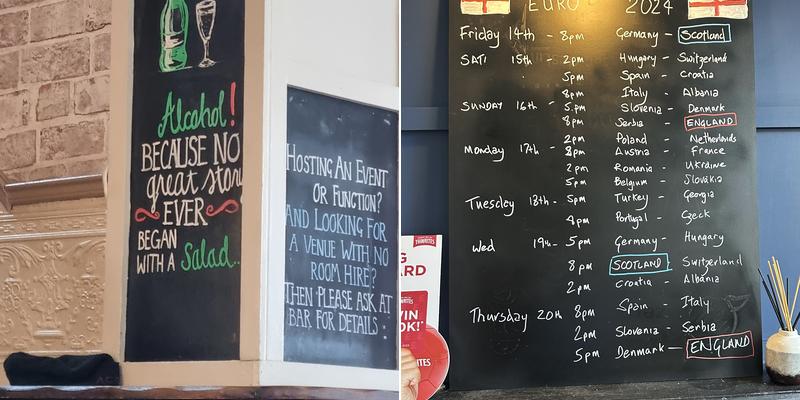 Alcohol!
BECAUSE NO
great story
EVER
BEGAN
WITH A Salad..
HOSTING AN EVENT
OR FUNCTION?
AND LOOKING FOR
A VENUE WITH NO
ROOM HIRE?
THEN PLEASE ASK AT
BAR FOR DETAILS
EURO 2024
Friday 14th - 8pm Germany - Scotland
SAT 15th 2pm Hungary - Switzerland
5pm Spain - Croatia
8pm Italy - Albania
SUNDAY 16th - 5.pm Slovenia - Denmark
8pm Serbia - ENGLAND
2pm Poland Netherlands
Monday 17th - 8pm Austria - France
2pm Romania - Ukraine
5pm Belgium - Slovakia
Tuesday 18th - 5pm Turkey - Georgia
4pm Portugal - Czeck
Wed 19th - 5pm Germany - Hungary
8pm SCOTLAND - Switzerland
2pm Croatia - Albania
Thursday 20th 8pm Spain - Italy
2pm Slovenia - Serbia
5pm Denmark - ENGLAND
THWAITES
ARD
WIN
OK!
ITES